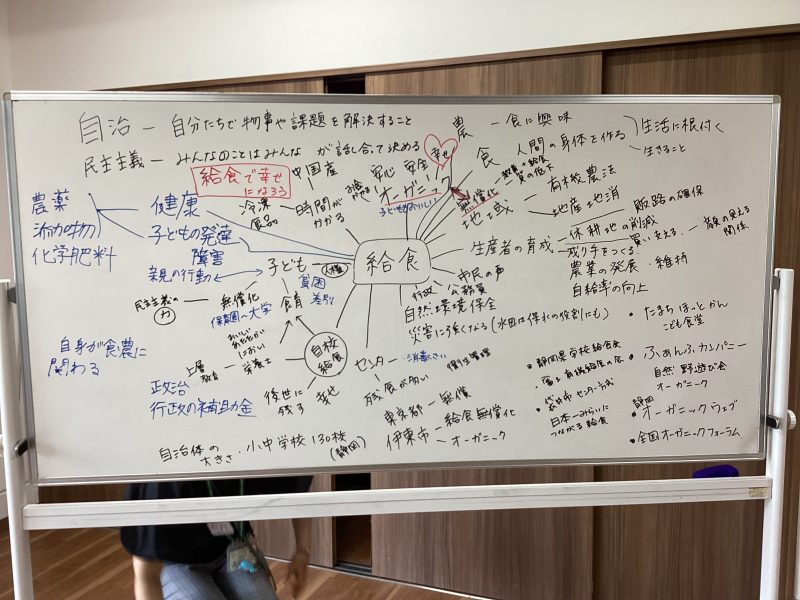 自治 ー 自分たちで物事や課題を解決すること
民主主義 ー みんなのことはみんなが話し合って決める
給食で幸せ
になろう
農薬
添加物
化学肥料
健康
子どもの発達
障害
親の行動
冷凍
食品
中国産
時間が
かかる
安心 安全
幸せ
オーガニック
子どももおいしい
無償化
農 ー 食に興味
食 人間の身体を作る
生活に根付く
生きること
地域 ー 有機農法
地産地消
販路の確保
生産者の育成
休耕地の削減
成り手をつくる
買い支える ー 顔の見える
関係
農業の発展・維持
自給率の向上
給食
子ども
人権
貧困
差別
食育
無償化
保育園〜大学
民主主義の
力
自身が食農に
関わる
政治
行政の補助金
上層
教育
栄養士
自校
給食
後世に
残す
幸せ
自治体の
大きさ
小中学校 130校
(静岡)
行政
公務員
市民の声
自然環境保全
災害に強くなる(水田は保水の役割にも)
センター
残食が多い
衛生管理
東京都 ー 無償
伊東市 ー 給食無償化
オーガニック
・静岡県学校給食会
・袋井市 センター方式
日本一みらいに
つながる給食
・たまち ほっとかん
こども食堂
・ふぁんふぁカンパニー
自然 野遊び会
オーガニック
静岡
・オーガニックウェブ
・全国オーガニックフォーラム